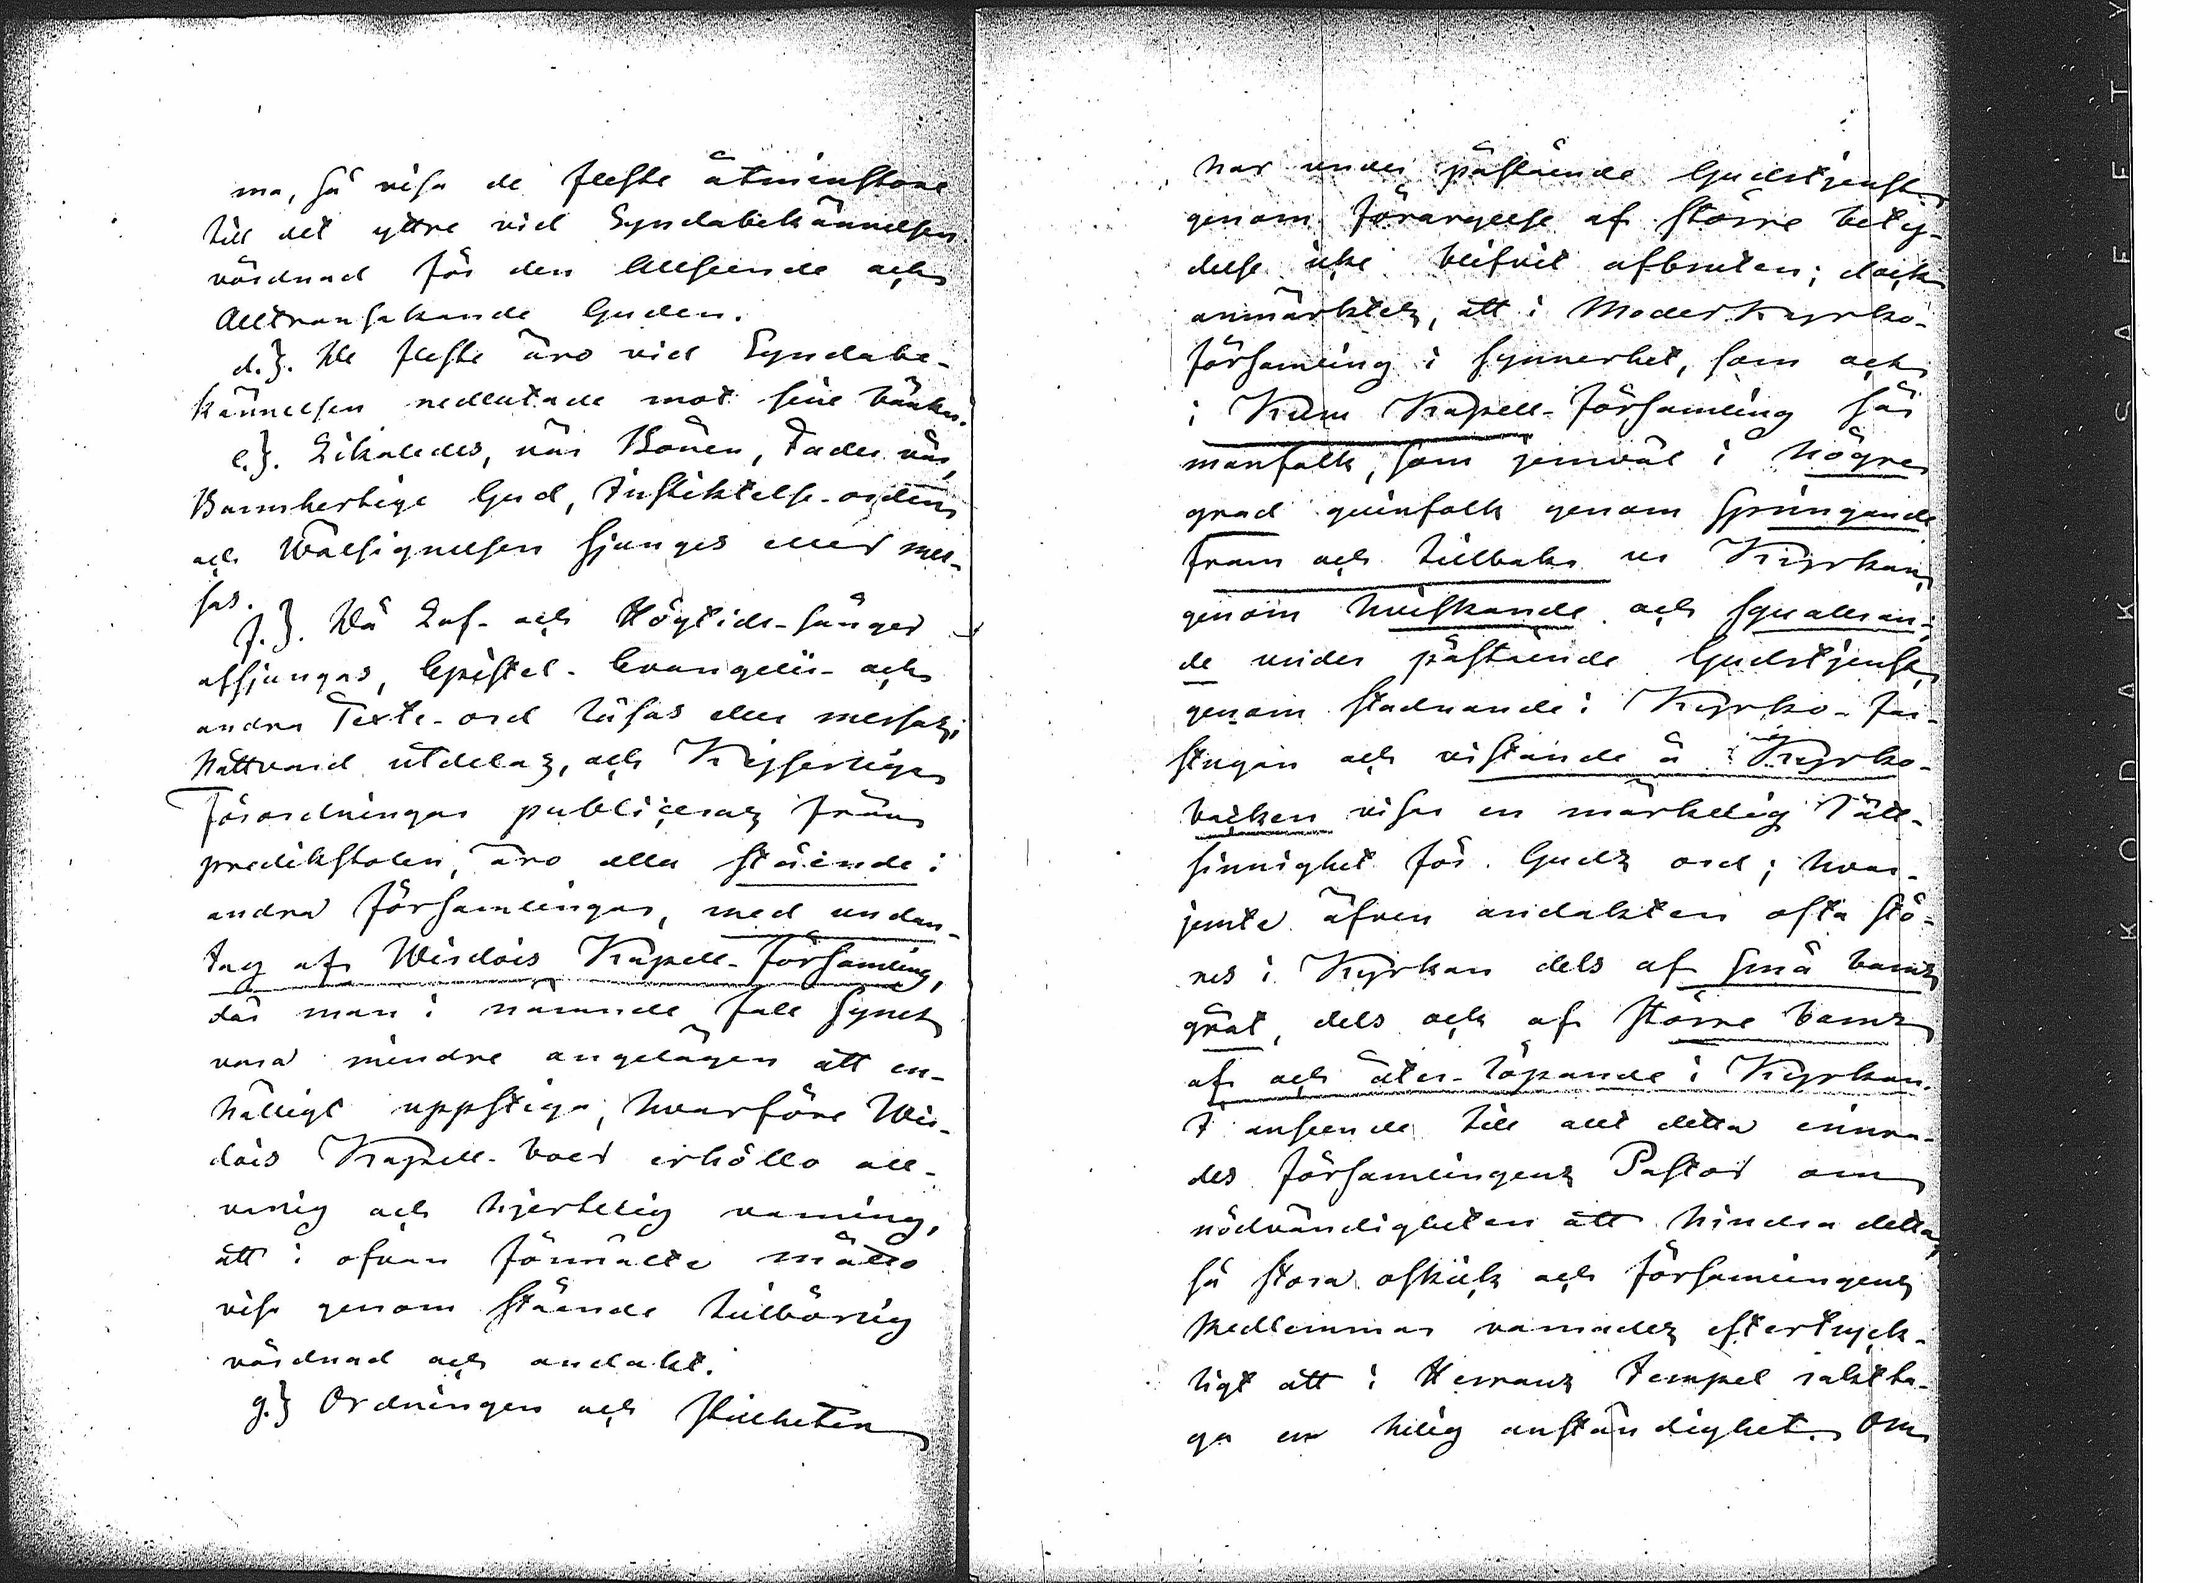 ma, så visa de fleste åtminstone
till det yttre vid Syndabekännelsen
vördnad för den Allseende och
Alltransakande Guden.
d.). De fleste äro vid Syndabe-
kännelsen nedlutade mot sine bänkar.
e.). Likaledes, när Bönen, Fader vår,
Barmhertige Gud, Instiktelse-orden
och Wälsignelsen sjunges eller mes-
sas.
f.). Då Lof- och Högtids-sånger
afsjungas, Epistel- Evangelii- och
andra Texte-ord läsas eller messas,
Nattvard utdelas, och Kejserliga
Förordningar publiceras från
predikstolen, äro alla stående i
andra Församlingar, med undan-
tag af Wirdois Kapell-Församling,
där man i nämnde fall synes
vara mindre angelägen att en-
hälligt uppstiga, hvarföre Wir-
dois Kapell-boer erhöllo all-
varlig och hjertelig varning,
att i ofvan förmälte måtto
visa genom stående tillbörlig
vördnad och andakt.
g.) Ordningen och stillheten
har under påstående Gudstjenst
genom förargelse af större bety-
delse icke blifvit afbruten; dock
anmärktes, att i Moder Kyrko-
församling i synnerhet, som och
i Kuru Kapell-Församling så
manfolk, som jemväl i högre
grad qvinfolk genom springande
fram och tillbaka ur Kyrkan,
genom hviskande och squalleran-
de under påstående Gudstjenst,
genom stadnande i Kyrko-far-
stugan och vistande å Kyrko-
backen visa en märkelig lätt-
sinnighet för Guds ord; hvar-
jemte äfven andakten ofta stö-
res i Kyrkan dels af små barns
gråt, dels och af större barns
af och åter-löpande i Kyrkan.
I anseende till allt detta erinra-
des Församlingens Pastor om
nödvändigheten att hindra detta
så stora oskick och Församlingens
Medlemmar varnades eftertryck-
ligt att i Herrans Tempel iaktta-
ga en helig anständighet. Om
KODAK SAFETY